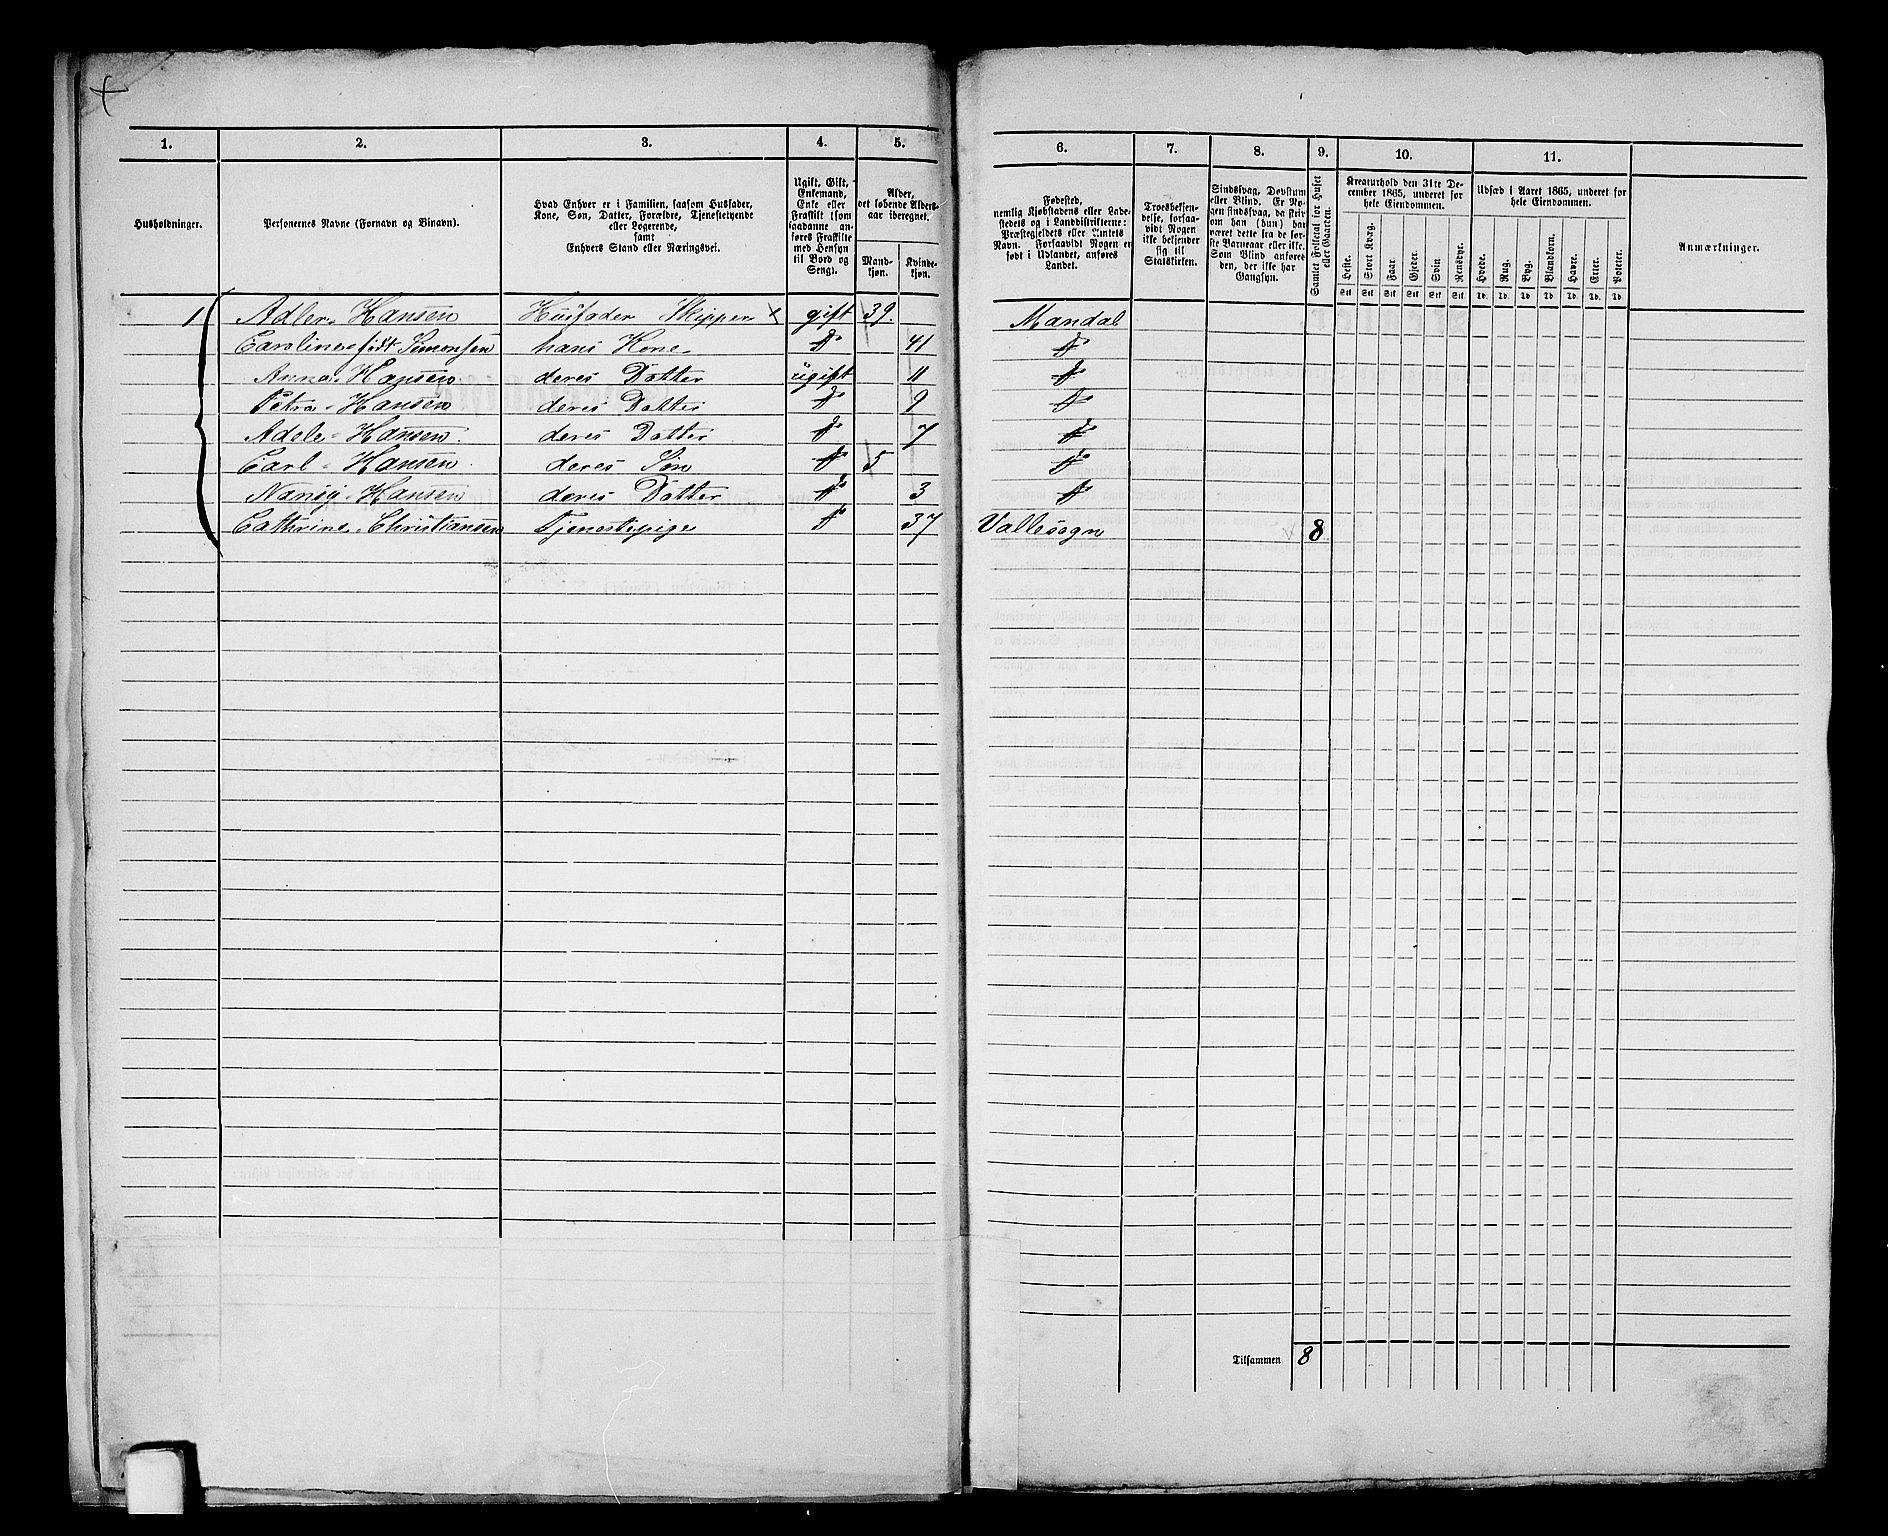 1. 2. 3. 4. 5.
Husholdninger.
Personernes Navne (Fornavn og Binavn).
Hvad Enhver er i Familien, saasom Husfader,
Kone, Søn, Datter, Forældre, Tjenestetyende
eller Logerende,
samt
Enhvers Stand eller Næringsvei.
Ugift, Gift,
Enkemand,
Enke eller
Fraskilt (som
saadanne an-
føres Fraskilte
med Hensyn
til Bord og
Seng).
Alder,
det løbende Alders-
aar iberegnet.
Mand-
kjøn.
Kvinde-
kjøn.
1 Adler Hansen Husfader Skipper gift 39.
Caroline født Simonsen hans Kone do 41
Anna Hansen deres Datter ugift 11
Petra Hansen deres Datter do 9
Adele Hansen deres Datter do 7
Carl Hansen deres Søn do 5
Nansy Hansen deres Datter do 3
Cathrine Christiansen Tjenestepige do 37
6. 7. 8. 9. 10. 11.
Fødested,
nemlig Kjøbstadens eller Lade-
stedets og i Landdistrikterne:
Præstegjeldets eller Amtets
Navn. Forsaavidt Nogen er
født i Udlandet, anføres
Landet.
Troesbekjen-
delse, forsaa-
vidt Nogen
ikke bekjender
sig til
Statskirken.
Sindssvag, Døvstum
eller Blind. Er No-
gen sindssvag, da skriv
om han (hun) har
været dette fra de før-
ste Barneaar eller ikke.
Som Blind anføres
den, der ikke har
Gangsyn.
Samlet Folketal for Huset
eller Gaarden.
Kreaturhold den 31te De-
cember 1865, underet for
hele Eiendommen.
Heste. Stort Kvæg. Faar. Gjeder. Svin. Rensdyr.
Stk Stk Stk Stk Stk Stk
Udsæd i Aaret 1865, underet for
hele Eiendommen.
Hvede. Rug. Byg. Blandkorn. Havre. Erter. Poteter.
Td. Td. Td. Td. Td. Td. Td.
Anmærkninger.
Mandal
do
do
do
do
do
do
Vallesogn 8
Tilsammen 8